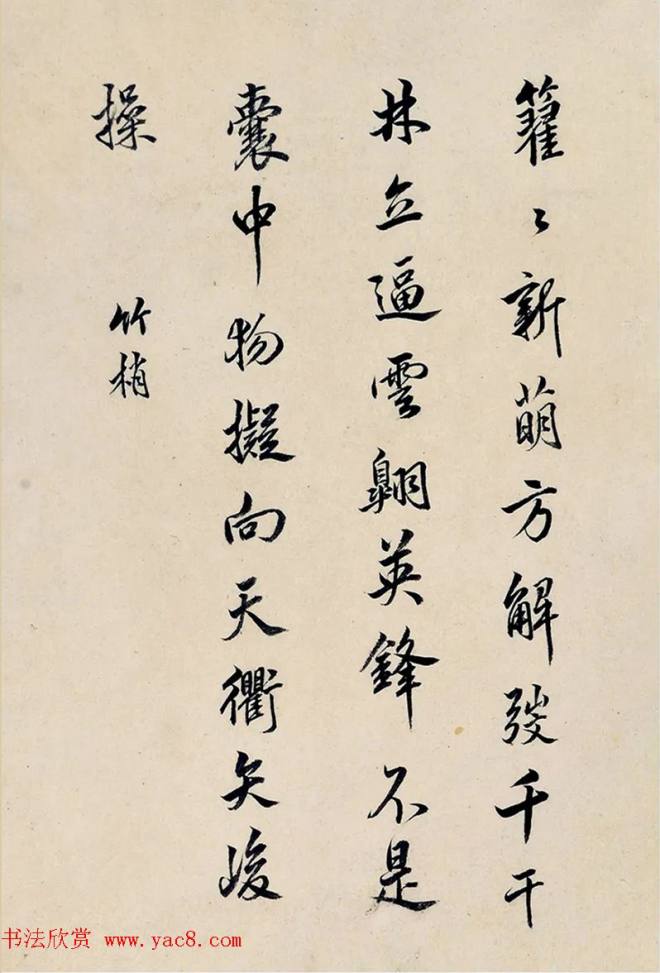 籊〻新萌方解弢千干
林立逼雲翱英鋒不是
囊中物擬向天衢矢峻
操
竹梢
书法欣赏 www.yac8.com